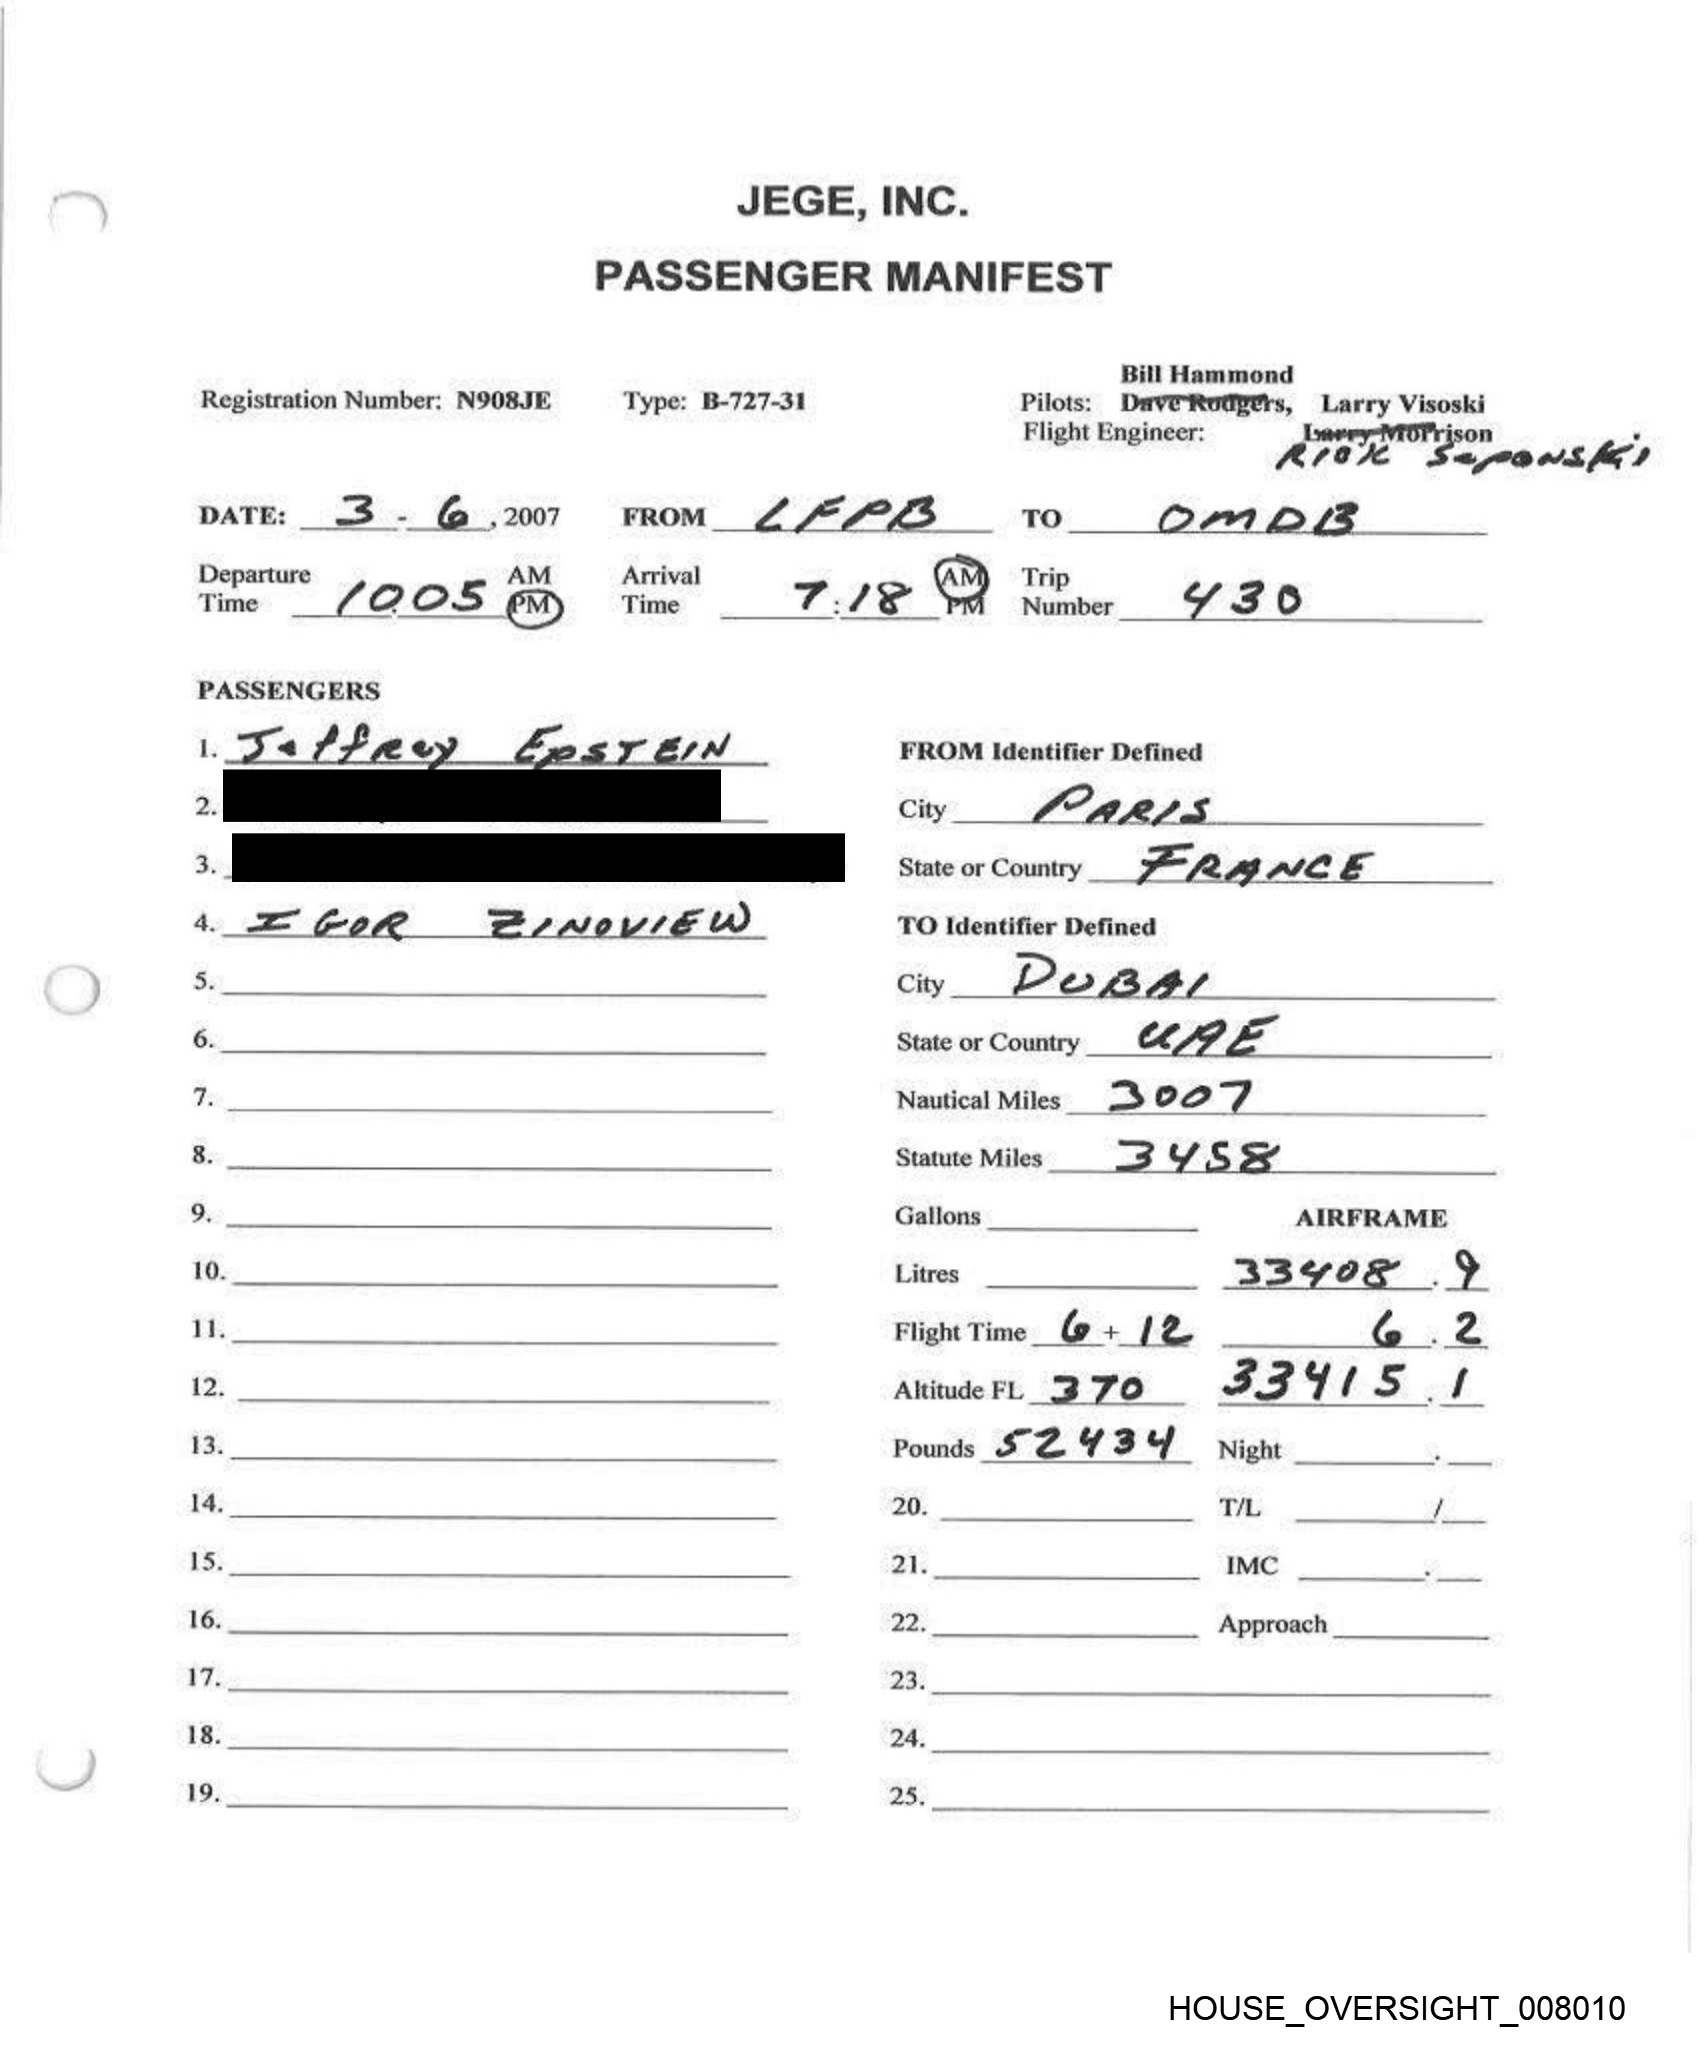 JEGE, INC.
PASSENGER MANIFEST
Bill Hammond
Registration Number: N908JE Type: B-727-31 Pilots: Dave Rodgers, Larry Visoski
Flight Engineer: Larry Morrison
RICK SEPONSKI
DATE: 3 - 6, 2007 FROM LFPB TO OMDB
Departure Time 10:05 AM PM Arrival Time 7:18 AM PM Trip Number 430
PASSENGERS
1. Jeffrey EpSTEIN
2.
3.
4. IGOR ZINOVIEW
5.
6.
7.
8.
9.
10.
11.
12.
13.
14.
15.
16.
17.
18.
19.
FROM Identifier Defined
City PARIS
State or Country FRANCE
TO Identifier Defined
City DUBAI
State or Country UAE
Nautical Miles 3007
Statute Miles 3458
Gallons AIRFRAME
Litres 33408.9
Flight Time 6 + 12 6.2
Altitude FL 370 33415.1
Pounds 52434 Night .
20. T/L /
21. IMC .
22. Approach
23.
24.
25.
HOUSE_OVERSIGHT_008010